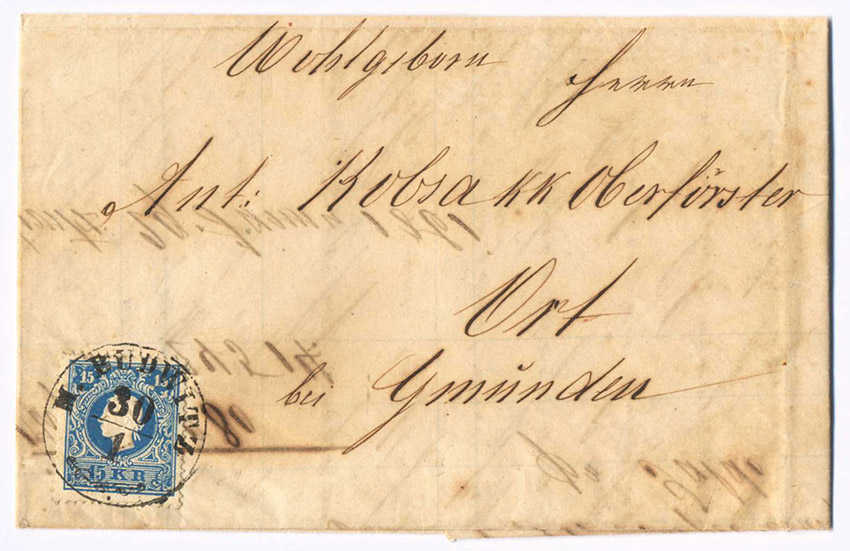 Wohlgeborn
Herrn
Ant: Kobsa kk Oberförster
Ort
bei Gmünden
M. BUDWITZ
30
1
15 15
15 KR